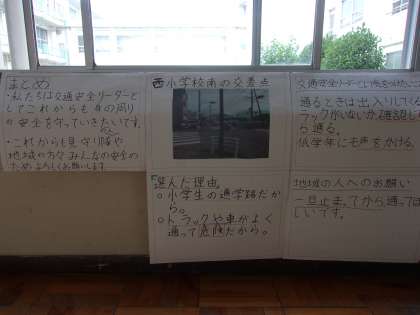 まとめ
・私たちは交通安全リーダーとし
てこれからも身の周り
の安全を守っていきたいです。
・これからも見守り隊や
地域の方々みんなの安全の
ためよろしくお願いします。
西小学校南の交差点
選んだ理由。
○小学生の通学路だか
ら。
○トラックや車がよく
通って危険だから。
交通安全リーダーとして
通るときは出入りして
ラックがいないか確認し
ら通る。
低学年にも声をかける。
地域の人へのお願い
一旦止まってから通って
しいです。